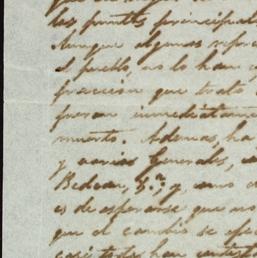 que
los puntos principal
Aunque algunas refor
el pueblo, no lo han
fraccion que trató
fueran inmediatam
muerto. Ademas, ha
y varios Generales,
y, como
es de esperarse que no
que el cambio se efec
casi todos han